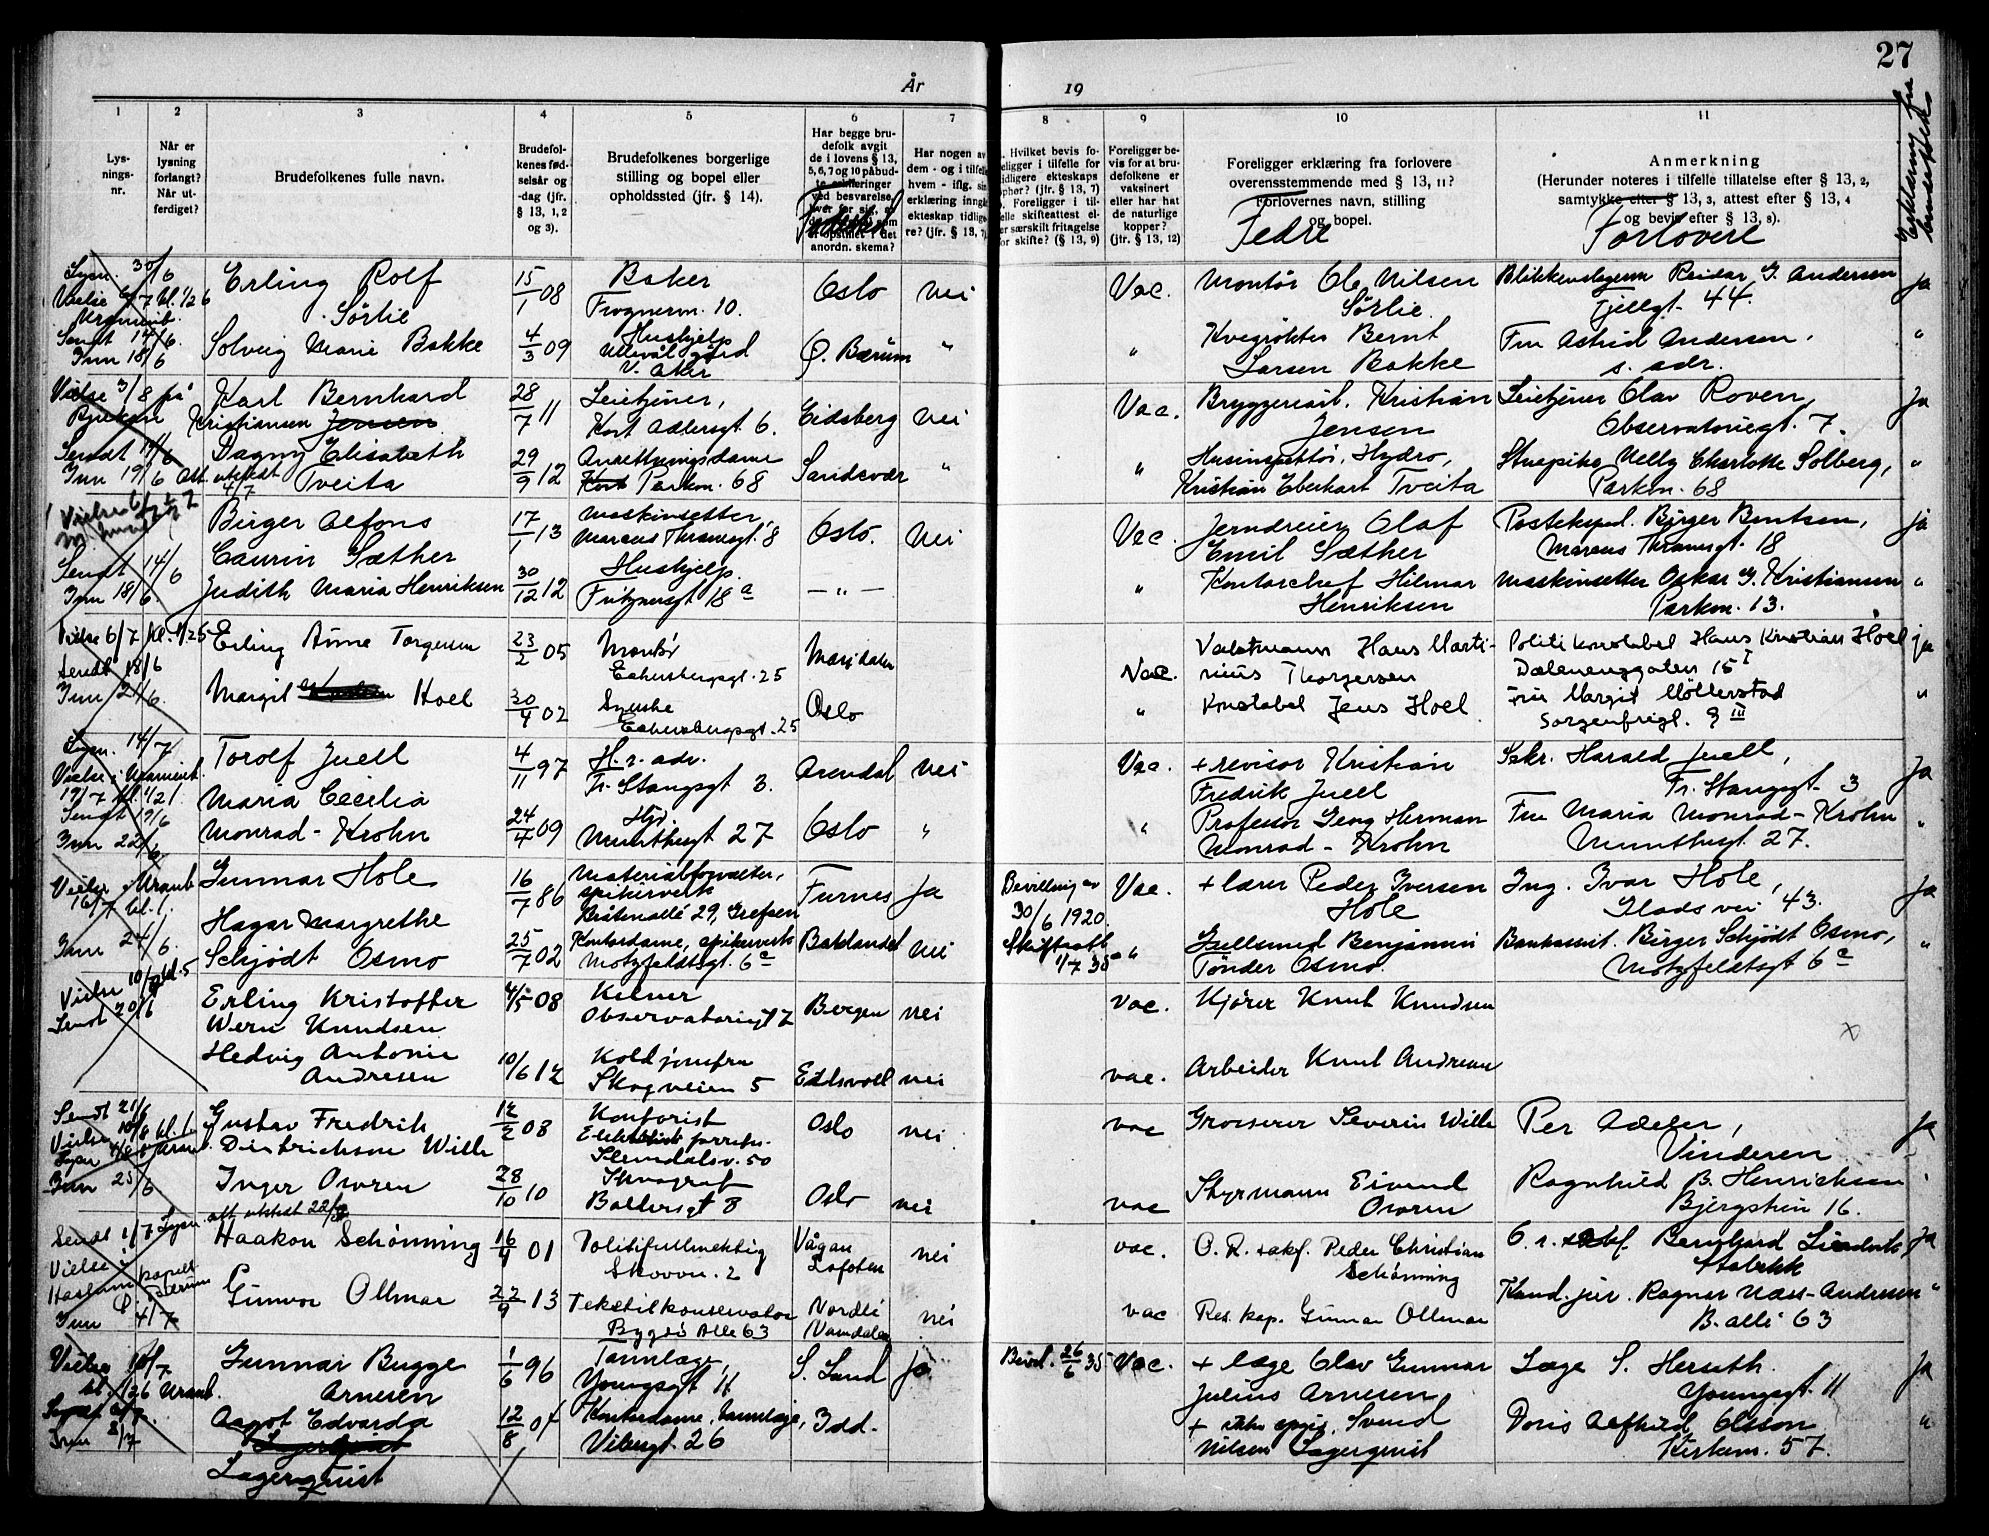 27
År
19
Erklæring fra brudefolk
1
2
3
4
5
6
7
8
9
10
11
Lys-
nings-
nr.
Når er
lysning
forlangt?
Når ut-
ferdiget?
Brudefolkenes fulle navn.
Brudefol-
kenes fød-
selsår og
-dag (jfr.
§ 13, 1, 2
og 3).
Brudefolkenes borgerlige
stilling og bopel eller
opholdssted (jfr. § 14).
Har begge bru-
defolk avgit
de i lovens § 13,
5, 6, 7 og 10 påbud-
ved besvarelse
anordn. skema?
Fødested
Har nogen av
dem - og i tilfelle
hvem - iflg. sin
erklæring inngå
ekteskap tidlige
re? (jfr. § 13, 7)
Hvilket bevis fo-
religger i tilfelle for
tidligere ekteskaps
ophør? (jfr. § 13, 7)
Foreligger i til-
felle skifteattest el-
er særskilt fritagelse
for skifte? (§ 13, 9)
Foreligger be-
vis for at bru-
defolkene er
vaksinert
eller har hat
de naturlige
kopper?
(jfr. § 13, 12)
Foreligger erklæring fra forlovere
overensstemmende med § 13, 11?
Forlovernes navn, stilling
og bopel.
Fedre
Anmerkning
(Herunder noteres i tilfelle tillatelse efter § 13, 2,
samtykke efter § 13, 3, attest efter § 13, 4
og bevis efter § 13, 8).
Forlovere
Lysn. 30/6
Vielse 6/7 kl. 1/2 6
Uranienb.
Sendt 14/6.
Inn 18/6
Erling Rolf
Sørlie
15/1 08
Baker
Frognervn. 10.
Oslo
Nei
Vac.
Montør Ole Nilsen
Sørlie.
Blikkenslagerm Reidar G. Andersen
Fjellgt. 44.
Ja
Solveig Marie Bakke
4/3 09
Hushjelp
Ullevål gård
V. Aker
Ø. Bærum
"
"
Kvegrøkter Bernt
Larsen Bakke
Fru Astrid Andersen,
s. adr.
"
Vielse 3/8 på
Sendt 14/6
Inn 19/6 Att. utstedt
4/7
Karl Bernhard
Kristiansen Jensen
28/7 11
Leietjener,
Kort Adlersgt 6.
Eidsberg
Nei
Vac.
Bryggeriarb. Kristian
Jensen
Leietjener Olav Roven,
Observatoriegt. 7.
Ja
Dagny Elisabeth
Tveita
29/9 12
Ansettningsdame
Kort Parkvn. 68
Sandsvær
"
"
Husinspektør, Hydro,
Kristian Eberhart Tveita
Stuepike Nelly Charlotte Solberg,
Parkvn. 68
"
Sendt 14/6
Inn 18/6
Birger Alfons
Caurin Sæther
17/1 13
Maskinsetter,
Marcus Thranesgt. 8
Oslo.
Nei
Vac.
Jerndreier Olaf
Emil Sæther
Posteksped. Birger Bentsen,
Marcus Thranesgt. 18
ja
Judith Maria Henriksen
30/12 12
Hushjelp
Fritznersgt 18a
— " —
"
Kontorchef Hilmar
Henriksen
Maskinsetter Oskar G. Kristiansen
Parkvn. 13.
"
Vielse 6/7 kl. 1/2 5
Sendt 18/6
Inn 21/6.
Erling Arne Torgersen
23/2 05
Montør
Eckersbergsgt. 25
Maridalen
Vac.
Vaktmann Hans Marti-
nius Thorgersen
Politikonstabel Hans Kristian Hoel
Dælenenggaten 15 I
ja
Margit Hoel
30/4 02
Syerske
Eckersbergsgt. 25
Oslo
"
Konstabel Jens Hoel
Fru Margit Möllerstad
Sorgenfrigt. 9 III
"
Lysn. 14/7
Vielse i Uranienb.
19/7 kl. 1/2 1.
Sendt 19/6
Inn 22/6
Torolf Juell
4/11 97
H.r. adv.
Fr. Stangsgt 3.
Arendal
Nei
Vac.
+ revisor Kristian
Fredrik Juell
Sekr. Harald Juell,
Fr. Stangsgt. 3
Ja
Maria Cecilia
Monrad-Krohn
24/4 09
Hj.
Munthesgt 27
Oslo
"
"
Professor Georg Herman
Monrad-Krohn
Fru Maria Monrad-Krohn
Munthesgt 27.
"
Vielse Uranb
16/7 kl. 1.
Inn 24/6.
Gunnar Hole
16/7 86
Materialforvalter,
spikerverk
Bråtenallé 29, Grefsen
Furnes
Ja
Bevilling av
30/6 1920.
Vac.
+ lærer Peder Iversen
Hole
Ing. Ivar Hole,
Gladsvei 43.
Ja
Hagar Margrethe
Schjödt Osmo
25/7 02
Kontordame, spikerverk
Motzfeldtsgt. 6c
Baklandet
Nei
Skifteatt.
1/7 35
"
Gullsmed Benjamin
Tønder Osmo.
Bankassist. Birger Schjödt Osmo,
Motzfeldtsgt 6c
"
Vielse 10/8 kl. 5
Sendt 20/6
Erling Kristoffer
Wern Knudsen
4/5 08
Kelner
Observatoriegt 7
Bergen
nei
vac.
Kjører Knut Knudsen
x
Hedvig Antonie
Andresen
10/6 12
Koldjomfru
Skogveien 5
Eidsvoll
nei
vac.
Arbeider Knut Andresen
Sendt 21/6
Vielse 10/8 kl. 1
Lysn 4/8 Uranb.
Inn 25/6
Gustav Fredrik
Dietrichson Wille
12/2 08
Kontorist
Slemdalsv. 50
Oslo
nei
vac
Grosserer Severin Wille
Per Adeler,
Vinderen
Ja
Inger Owren
28/10 10
Stenograf
Baldersgt 8
Oslo
nei
vac
Styrmann Eivind
Owren
Ragnhild B. Henrichsen
Bjergstien 16.
Sendt 1/7 Lysn. att utstedt 22/7
Vielse i
Haslum kapell
Bærum
Inn 4/7
Haakon Schönning
16/4 01
Politifullmektig
Skovvn. 2
Vågan
Lofoten
nei
vac.
O.R. sakf. Peder Christian
Schönning
O.r. sakf. Bernhard
Stabekk
Ja
Gunvor Ollmar
22/9 13
Tekstilkonservator
Bygdø Alle 63
Nordli
Namdalen
nei
vac
Res. kap. Gunnar Ollmar
Kand. jur. Ragnar Næss-Andresen
B. allé 63
"
Vielse 10/7
kl. 1/2 6 Uranb.
Inn 8/7
Gunnar Bugge
Arnesen
1/6 96
Tannlæge,
Youngsgt 11
S. Land
ja
Bevil. 26/6 35
Vac.
+ læge Olav Gunnar
Julius Arnesen
Læge S. Herseth
Youngsgt. 11
Ja
Aagot Edvarda
Lagerquist
Lagerquist
12/8 07
Kontordame, tannlæge,
Vibesgt. 26
Idd.
+ Svend
Nilsen Lagerquist
Doris Alfhild Olsson
Kirkevn. 57.
"